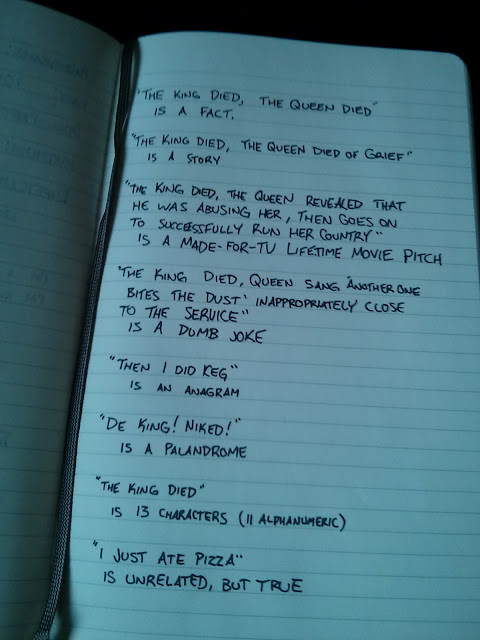 "THE KING DIED, THE QUEEN DIED"
IS A FACT.
"THE KING DIED, THE QUEEN DIED OF GRIEF"
IS A STORY
"THE KING DIED, THE QUEEN REVEALED THAT
HE WAS ABUSING HER, THEN GOES ON
TO SUCCESSFULLY RUN HER COUNTRY"
IS A MADE-FOR-TV LIFETIME MOVIE PITCH
"THE KING DIED, QUEEN SANG 'ANOTHER ONE
BITES THE DUST' INAPPROPRIATELY CLOSE
TO THE SERVICE"
IS A DUMB JOKE
"THEN I DID KEG"
IS AN ANAGRAM
"DE KING! NIKED!"
IS A PALANDROME
"THE KING DIED"
IS 13 CHARACTERS (11 ALPHANUMERIC)
"I JUST ATE PIZZA"
IS UNRELATED, BUT TRUE